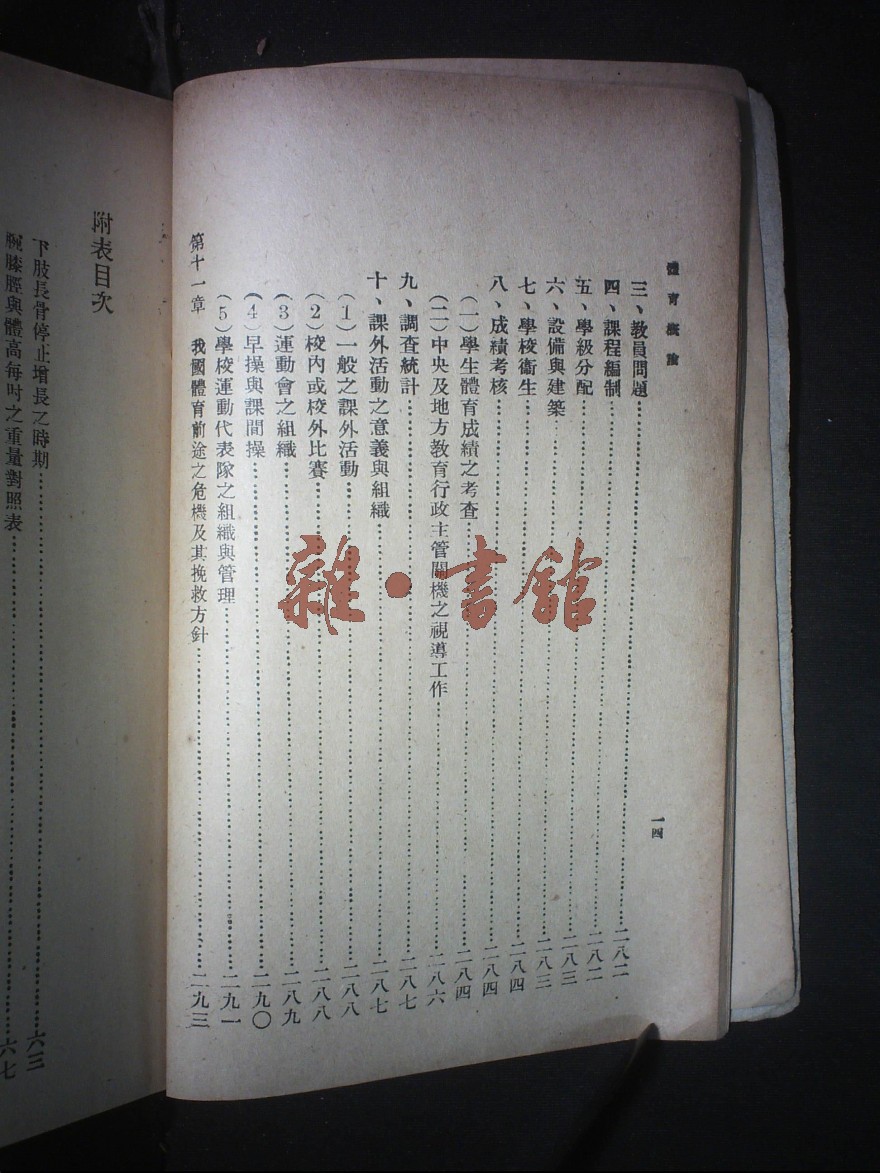 體育概論
一四
三、教員問題……二八二
四、課程編制……二八二
五、學級分配……二八三
六、設備與建築……二八三
七、學校衛生……二八四
八、成績考核……二八四
（一）學生體育成績之考查……二八四
（二）中央及地方教育行政主管關機之視導工作……二八六
九、調查統計……二八七
十、課外活動之意義與組織……二八七
（1）一般之課外活動……二八八
（2）校內或校外比賽……二八八
（3）運動會之組織……二八九
（4）早操與課間操……二九〇
（5）學校運動代表隊之組織與管理……二九一
第十一章　我國體育前途之危機及其挽救方針……二九三
附表目次
下肢長骨停止增長之時期……六三
腕膝脛與體高每吋之重量對照表……六七
雜·書館